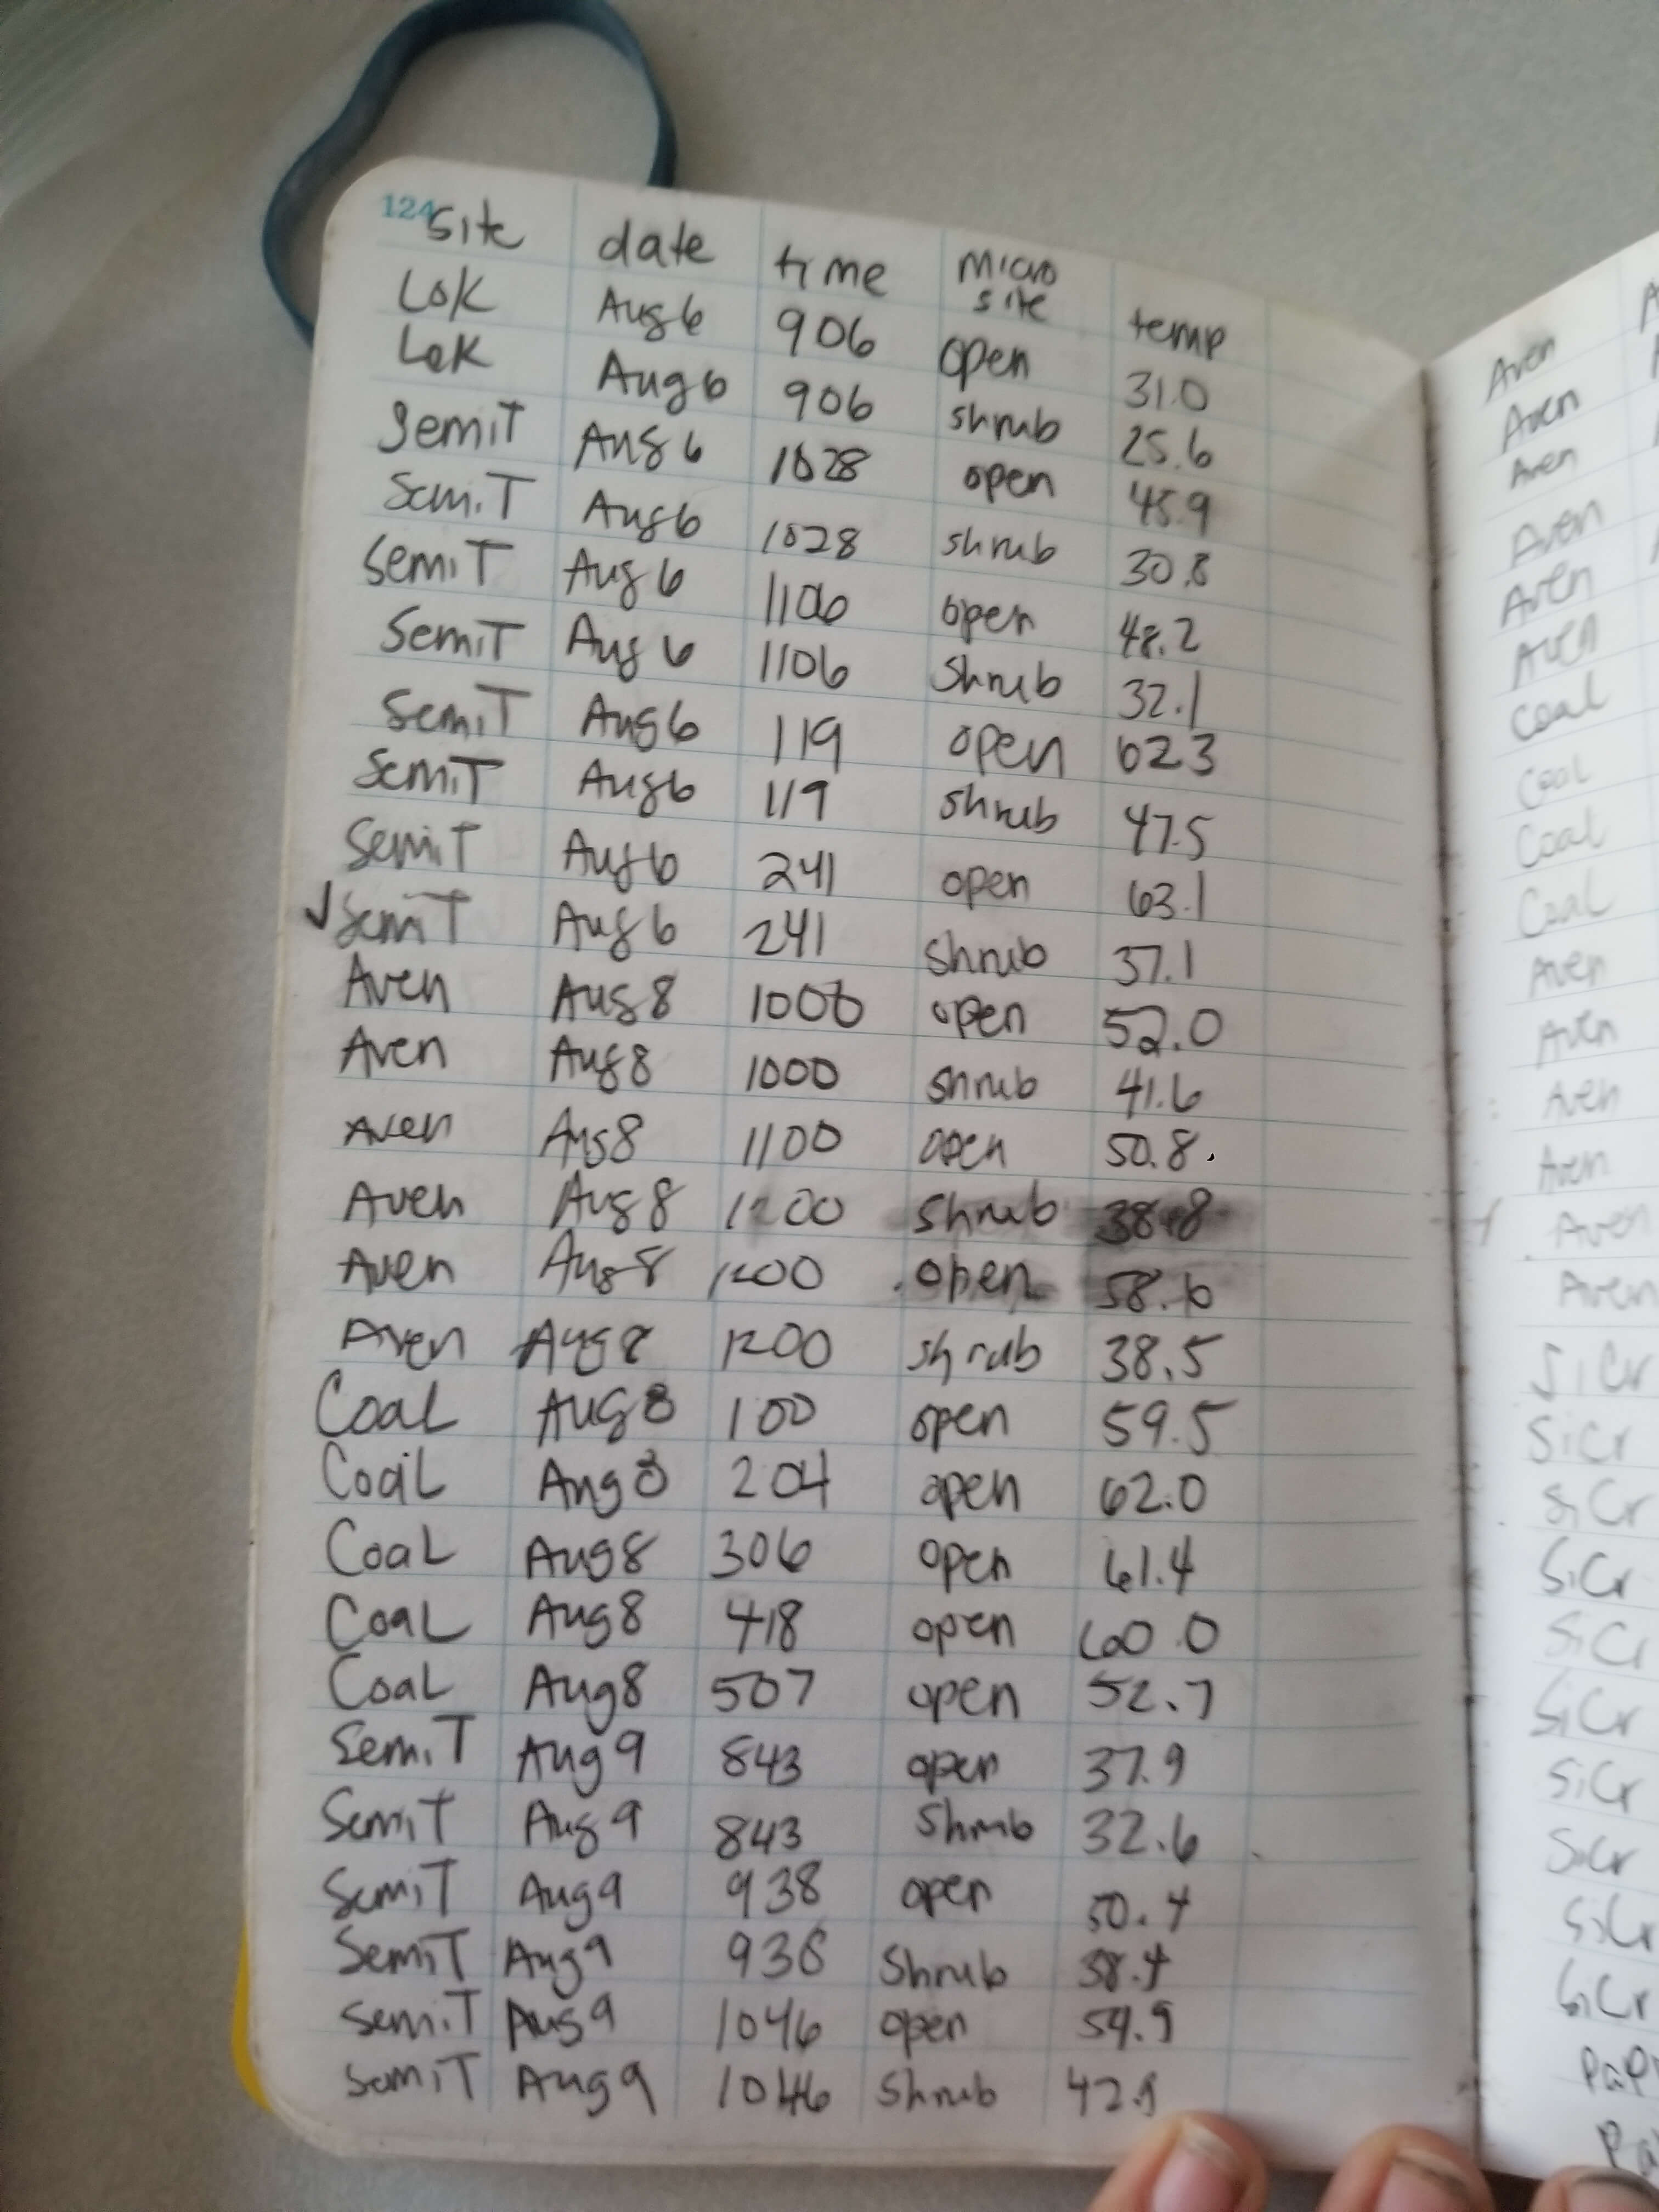 124
site date time micro site temp
Lok Aug 6 906 open 31.0
Lok Aug 6 906 shrub 25.6
SemiT Aug 6 1028 open 45.9
SemiT Aug 6 1028 shrub 30.8
SemiT Aug 6 1106 open 48.2
SemiT Aug 6 1106 Shrub 32.1
SemiT Aug 6 119 open 62.3
SemiT Aug 6 119 shrub 47.5
SemiT Aug 6 241 open 63.1
✓ SemiT Aug 6 241 shrub 37.1
Aven Aug 8 1000 open 52.0
Aven Aug 8 1000 shrub 41.6
Aven Aug 8 1100 open 50.8
Aven Aug 8 shrub 38.8
Aven Aug 8 1200 open 58.6
Aven Aug 8 1200 shrub 38.5
CoaL Aug 8 100 open 59.5
CoaL Aug 8 204 open 62.0
CoaL Aug 8 306 open 61.4
CoaL Aug 8 418 open 60.0
CoaL Aug 8 507 open 52.7
SemiT Aug 9 843 open 37.9
SemiT Aug 9 843 Shrub 32.6
SemiT Aug 9 938 open 50.4
SemiT Aug 9 938 Shrub
SemiT Aug 9 1046 open
SemiT Aug 9 1046 Shrub
Aven
Aven
Aven
Aven
Aven
Aven
Coal
Coal
Coal
Coal
Aven
Aven
Aven
Aven
Aven
Aven
SiCr
SiCr
SiCr
SiCr
SiCr
SiCr
SiCr
SiCr
SiCr
SiCr